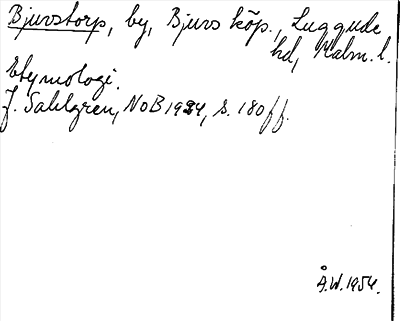 Bjuvstorp, by, Bjuvs köp., Luggude
hd, Malm. l.
Etymologi.
J. Sahlgren, NoB 1924, s. 180 ff.
Å.W. 1954.